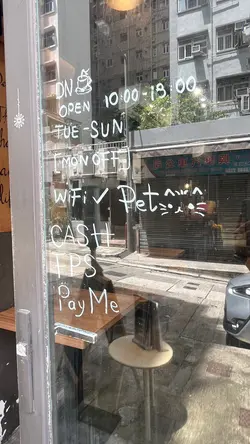 DN
OPEN 10:00-18:00
TUE-SUN
[MON OFF]
WiFi ✓ Pet
CASH
FPS
PayMe